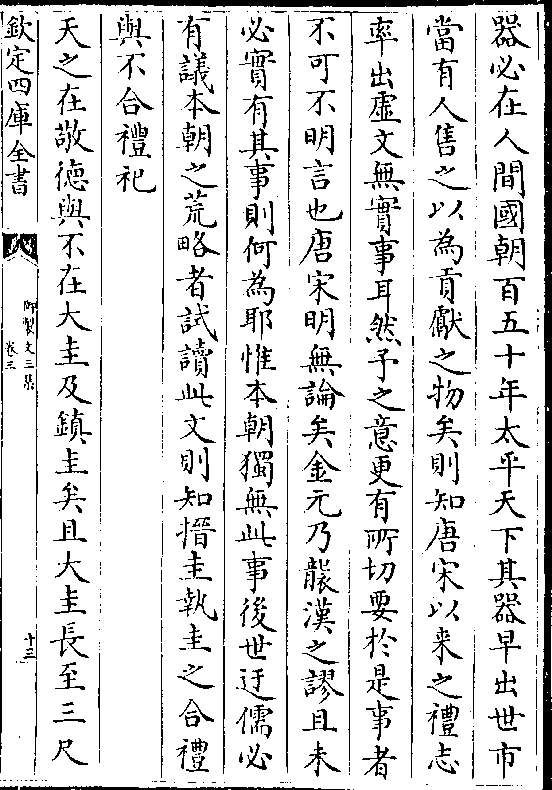 器必在人間國朝百五十年太平天下其器早出世市
當有人售之以為貢獻之物矣則知唐宋以来之禮志
率出虛文無實事耳然予之意更有所切要於是事者
不可不明言也唐宋明無論矣金元乃襲漢之謬且未
必實有其事則何為耶惟本朝獨無此事後世迂儒必
有議本朝之荒略者試讀此文則知搢圭執圭之合禮
與不合禮祀
天之在敬德與不在大圭及鎮圭矣且大圭長至三尺
欽定四庫全書
御製文三集
卷三
十三